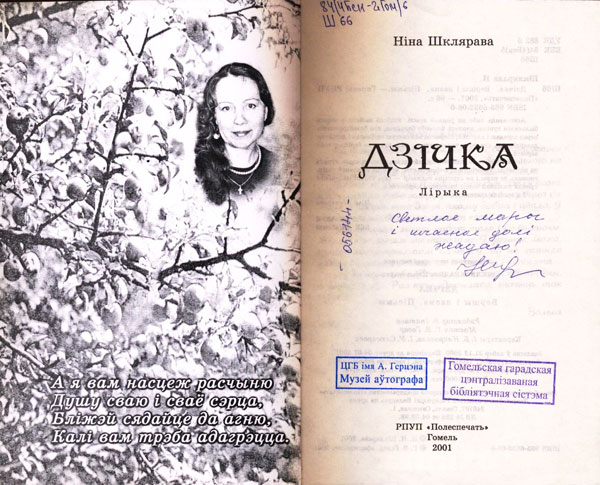 А я вам насцеж расчыню
Душу сваю і сваё сэрца,
Бліжэй сядайце да агню,
Калі вам трэба адагрэцца.
84(4Беи-2Гом)6
Ш 66
Ніна Шклярава
ДЗІЧКА
Лірыка
Светлае мары
і шчаснае долі
жадаю!
056144-
ЦГБ імя А. Герцэна
Музей аўтографа
Гомельская гарадская
цэнтралізаваная
бібліятэчная сістэма
РПУП «Полеспечать»
Гомель
2001